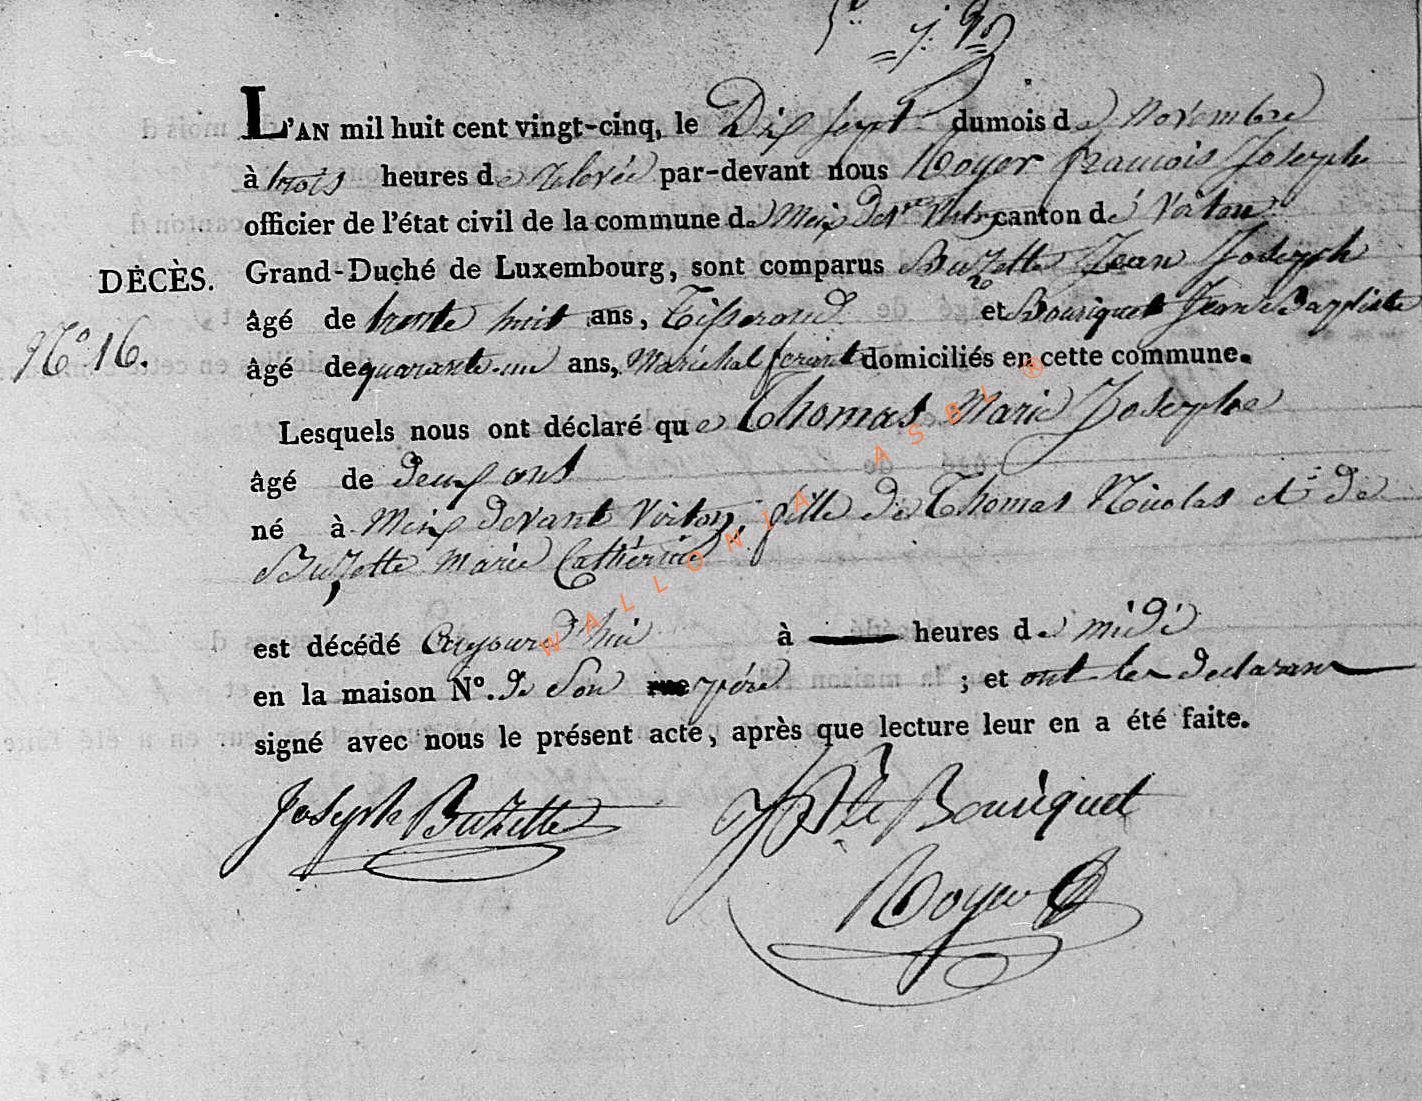 L'AN mil huit cent vingt-cinq, le Dix Sept du mois de novembre
à trois heures de Relevée par-devant nous Royer francois Joseph
officier de l'état civil de la commune de Meix devt Virton canton de Virton
DÉCÈS. Grand-Duché de Luxembourg, sont comparus Buzette Jean Joseph
âgé de trente huit ans, Tisserand et Bousiquet Jean Baptiste
No 16. âgé de quarante-un ans, Maréchal ferant domiciliés en cette commune.
Lesquels nous ont déclaré que Thomas Marie Josephe
âgé de deux ans
né à Meix devant Virton, fille de Thomas Nicolas et de
Buzette Marie Catherine
est décédé aujourd'hui à heures de midi
en la maison No. de Son père ; et ont les declarans
signé avec nous le présent acte, après que lecture leur en a été faite.
Joseph Buzette
Bte Bousiquet
Royer
WALLONIA ASBL ®